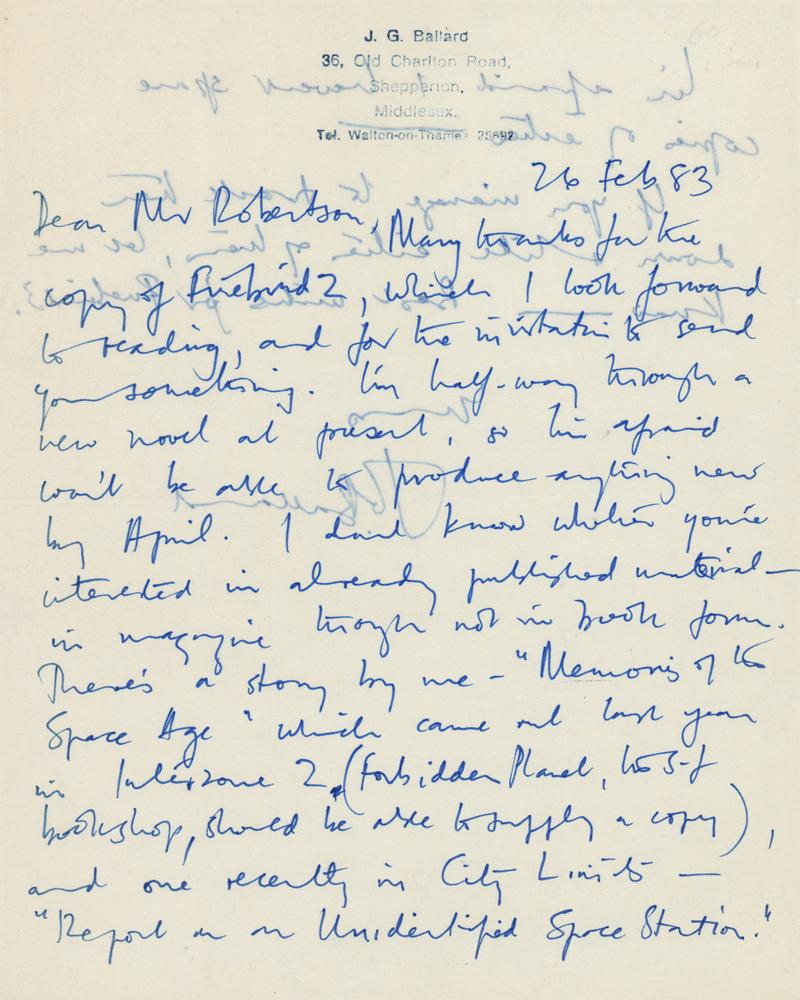 J. G. Ballard
36, Old Charlton Road,
Shepperton,
Middlesex.
Tel. Walton-on-Thames 25692
26 Feb 83
Dear Mr Robertson, Many thanks for the
copy of Firebird 2, which I look forward
to reading, and for the invitation to send
you something. I'm half-way through a
new novel at present, so I'm afraid
won't be able to produce anything new
by April. I don't know whether you're
interested in already published material—
in magazine though not in book form.
There's a story by me – "Memories of the
Space Age" which came out last year
in Interzone 2. (Forbidden Planet, the s-f
bookshop, should be able to supply a copy),
and one recently in City Limits —
"Report on an Unidentified Space Station."